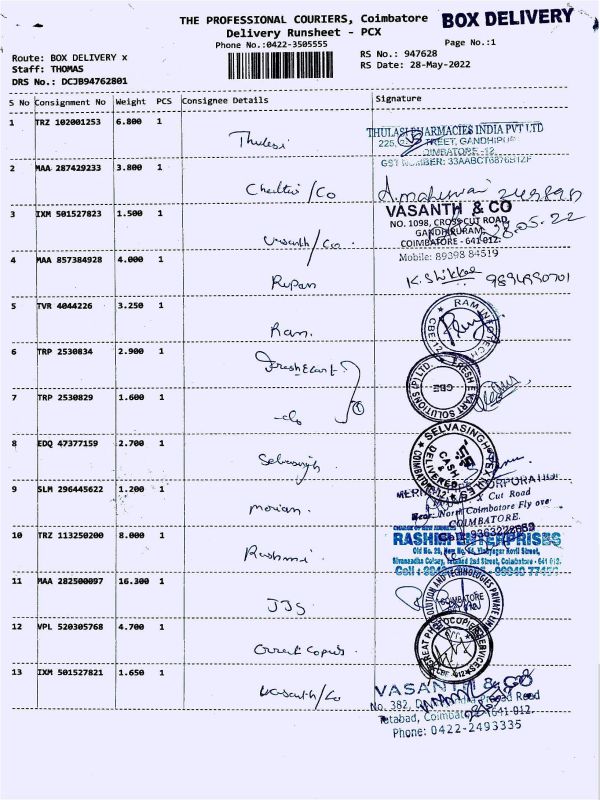 THE PROFESSIONAL COURIERS, Coimbatore
BOX DELIVERY
Delivery Runsheet - PCX
Phone No.:0422-3505555
Page No.:1
Route: BOX DELIVERY x
RS No.: 947628
Staff: THOMAS
RS Date: 28-May-2022
DRS No.: DCJB94762801
S No Consignment No Weight PCS Consignee Details Signature
1 TRZ 102001253 6.800 1 Thulasi
THULASI PHARMACIES INDIA PVT LTD
225, STREET, GANDHIPUR
COIMBATORE -12
GST NUMBER: 33AABCT6876B1ZF
2 MAA 287429233 3.800 1
3 IXM 501527823 1.500 1 Vasanth/Co.
VASANTH & CO
NO. 1098, CROSSCUT ROAD,
GANDHIPURAM,
COIMBATORE - 641 012.
28.05.22
Mobile: 89398 84519
4 MAA 857384928 4.000 1
5 TVR 4044226 3.250 1 Ram.
RAM INFOTECH
CBE-12
6 TRP 2530834 2.900 1 Fresh Ekart
FRESH E KART SOLUTIONS (P) LTD.
CBE
7 TRP 2530829 1.600 1 -do
8 EDQ 47377159 2.700 1 Selvasingh
SELVASINGH TEX
DELIVERED
CASH
9 SLM 296445622 1.200 1
CORPORATION
Cut Road
Near North Coimbatore Fly over
COIMBATORE.
10 TRZ 113250200 8.000 1 Rashmi
RASHMI ENTERPRISES
Old No. 29, New No. 54, Vinayagar Kovil Street,
Sivanandha Colony, Tatabad 2nd Street, Coimbatore - 641 012.
11 MAA 282500097 16.300 1 JJS
SOLUTION AND TECHNOLOGIES PRIVATE LIMITED
COIMBATORE
12 VPL 520305768 4.700 1 Great Copier.
GREAT PHOTOCOPIER SERVICES
13 IXM 501527821 1.650 1 Vasanth/Co
VASANTH & CO
No. 382, Road
Tatabad, Coimbatore - 641 012.
Phone: 0422-2493335